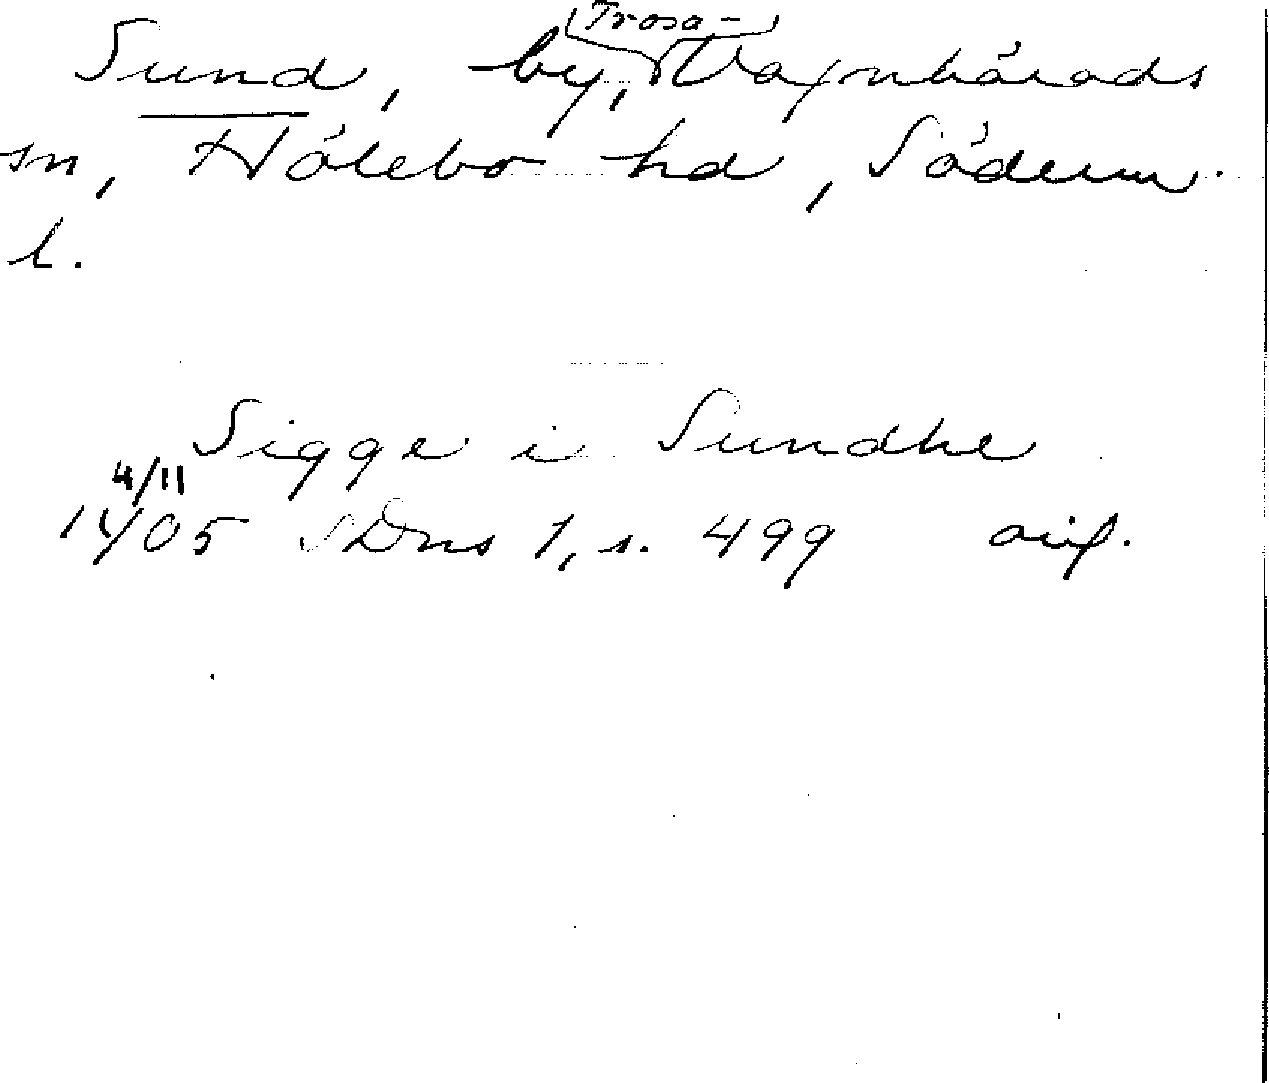 Trosa-
Sund, by, Vagnhärads
sn, Hölebo hd, Söderm.
l.
Sigge i Sundhe
4/11
14/05 SDns 1, s. 499 avf.